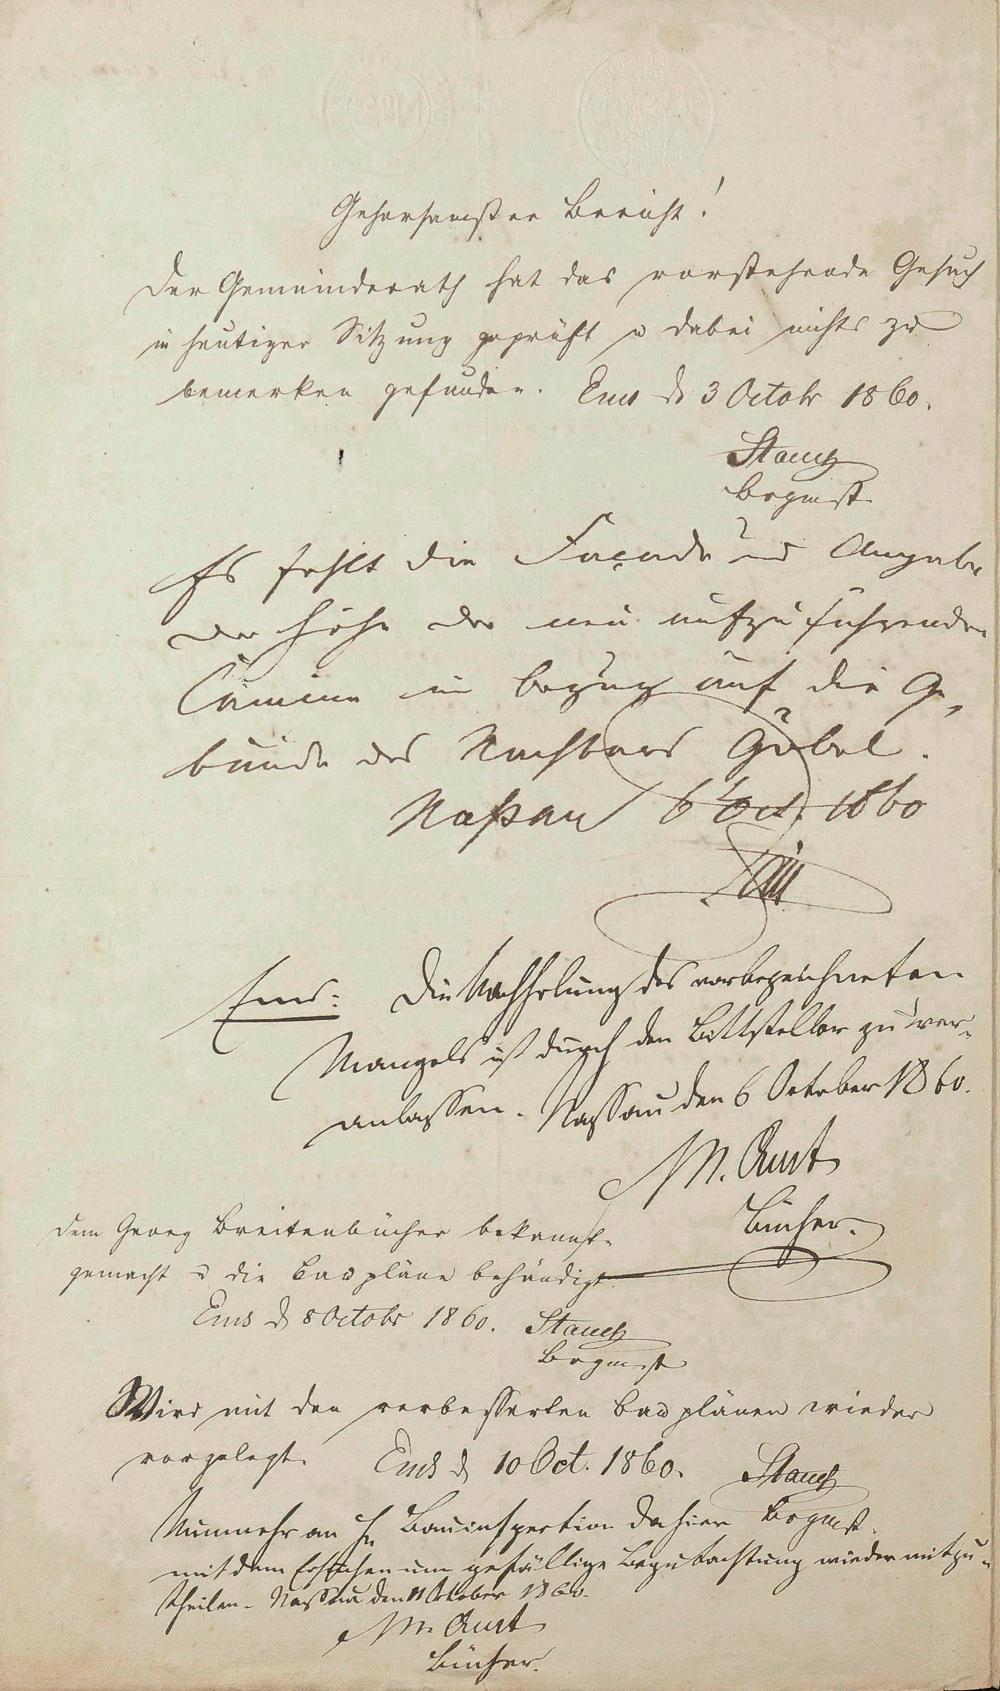 Gehorsamster Bericht!
Der Gemeinderath hat das vorstehende Gesuch
in heutiger Sitzung geprüft u dabei nichts zu
bemerken gefunden. Ems d 3 Octobr 1860.
Stauch
Brgmst.
Es fehlt die Façade und Angabe
der Höhe der neu aufzuführenden
Camine in bezug auf die Ge-
bäude des Nachbars Göbel.
Naßau 6 Oct. 1860
Ems: Die Nachholung des vorbezeichneten
Mangels ist durch den Bittsteller zu ver-
anlassen. Nassau den 6 October 1860.
Bücher.
Dem Georg Breitenbücher bekannt-
gemacht u die Baupläne behändigt
Ems d 8 Octobr 1860. Stauch
Brgmst
Wird mit den verbesserten Bauplänen wieder
vorgelegt. Ems d 10 Oct. 1860. Stauch
Nunmehr an H Bauinspection dahier Brgmst.
mit dem Ersuchen um gefällige Begutachtung wieder mitzu-
theilen. Nassau den 11 October 1860.
Bücher.